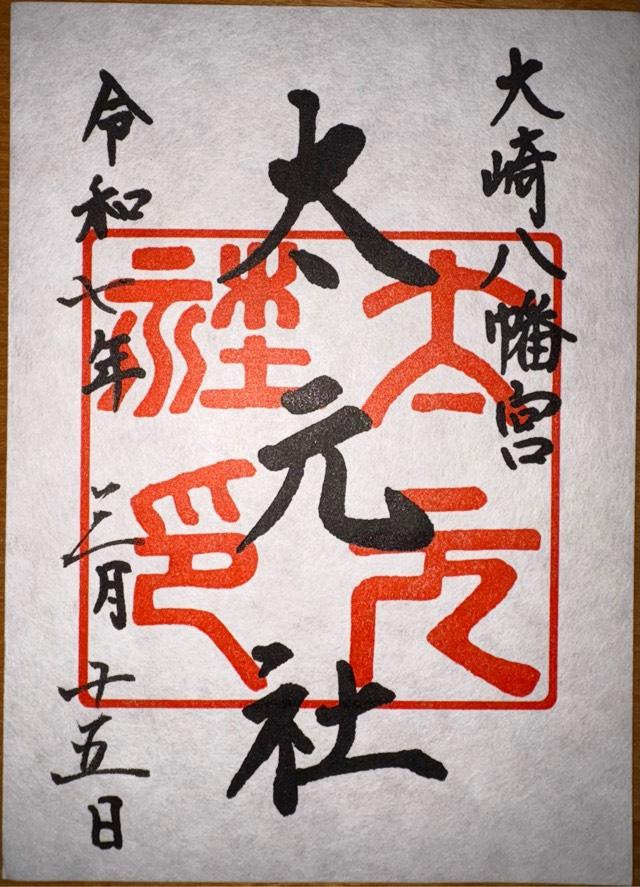 大崎八幡宮
太元社
令和七年 三月 廿五日
太元
社印